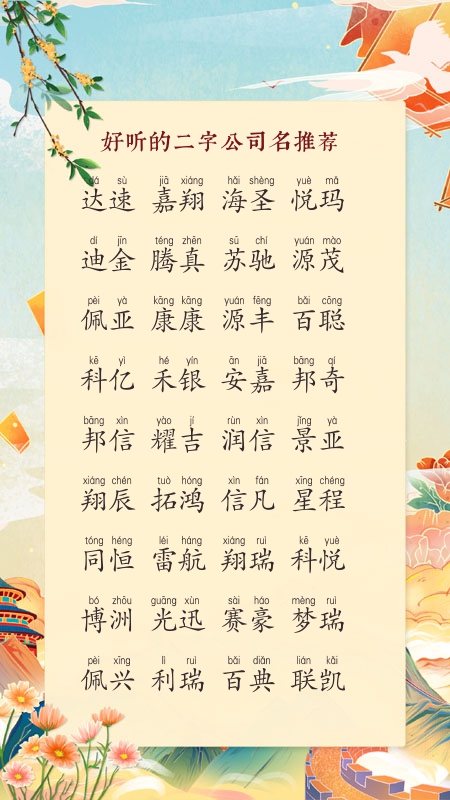 好听的二字公司名推荐
dá sù jiā xiáng hǎi shèng yuè mǎ
达速 嘉翔 海圣 悦玛
dí jīn téng zhēn sū chí yuán mào
迪金 腾真 苏驰 源茂
pèi yà kāng kāng yuán fēng bǎi cōng
佩亚 康康 源丰 百聪
kē yì hé yín ān jiā bāng qí
科亿 禾银 安嘉 邦奇
bāng xìn yào jí rùn xìn jǐng yà
邦信 耀吉 润信 景亚
xiáng chén tuò hóng xìn fán xīng chéng
翔辰 拓鸿 信凡 星程
tóng héng léi háng xiáng ruì kē yuè
同恒 雷航 翔瑞 科悦
bó zhōu guāng xùn sài háo mèng ruì
博洲 光迅 赛豪 梦瑞
pèi xīng lì ruì bǎi diǎn lián kǎi
佩兴 利瑞 百典 联凯